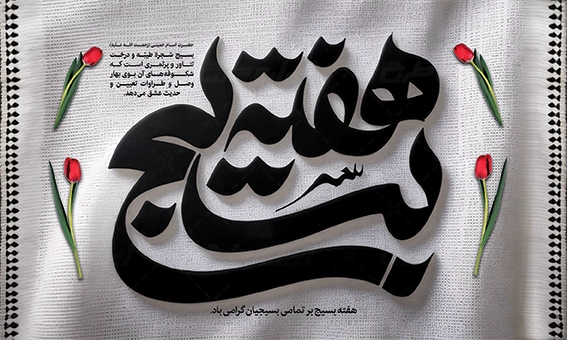 حضرت امام خمینی (رحمت الله علیه)
بسیج شجرهٔ طیبّه و درخت
تناور و پرثمری است که
شکوفه‌های آن بوی بهار
وصل و طراوات تعیین و
حدیث عشق می‌دهد.
هفته
بسیج
هفته بسیج بر تمامی بسیجیان گرامی باد.